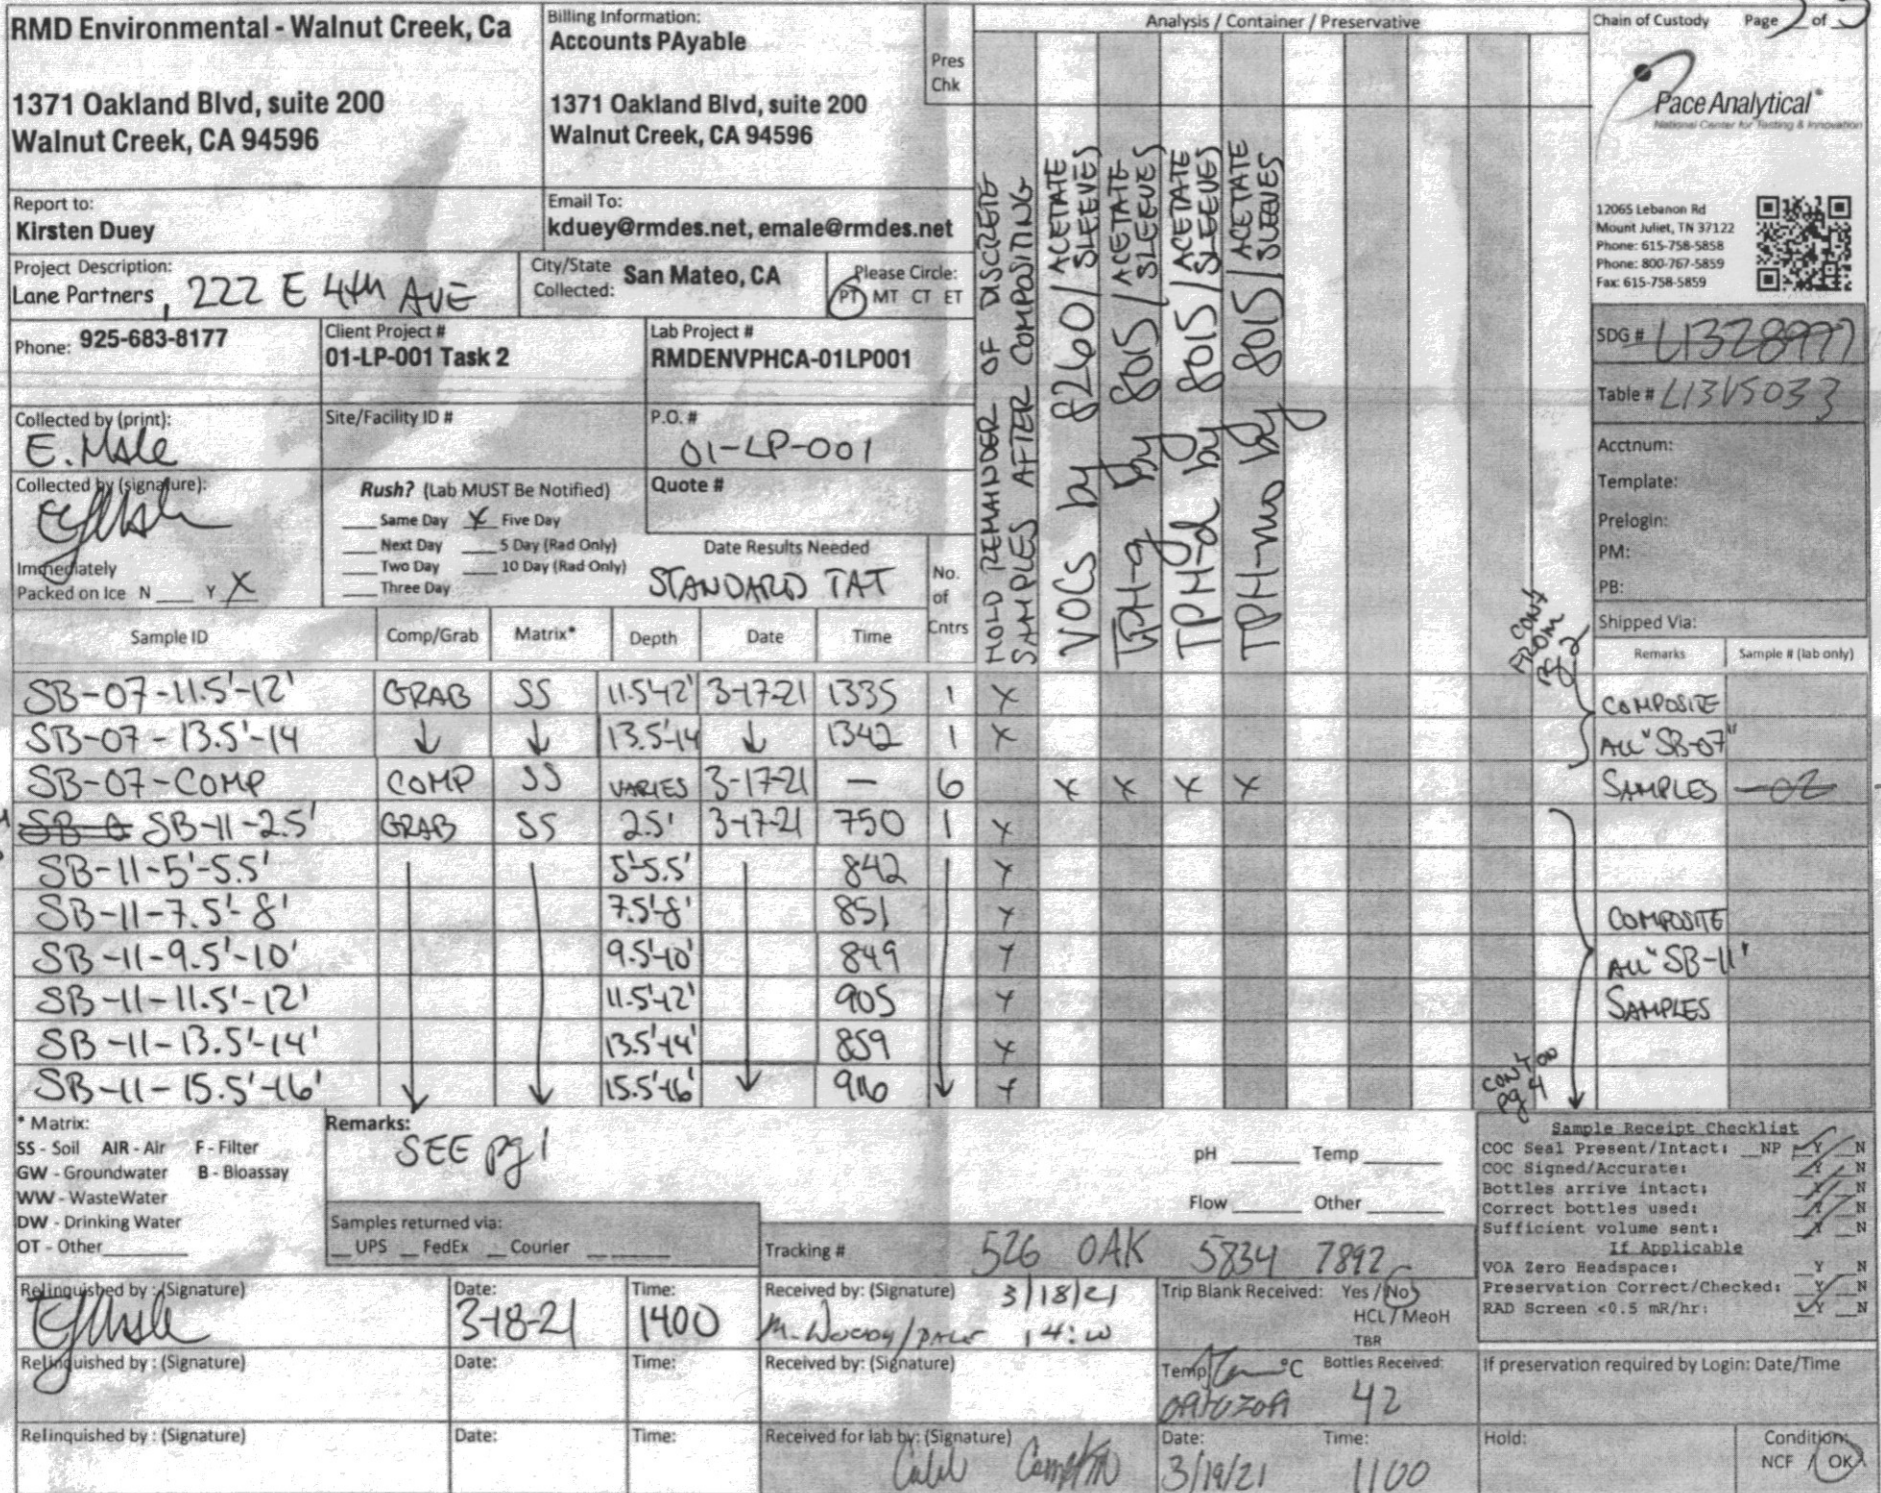 RMD Environmental - Walnut Creek, Ca
1371 Oakland Blvd, suite 200
Walnut Creek, CA 94596
Billing Information:
Accounts PAyable
1371 Oakland Blvd, suite 200
Walnut Creek, CA 94596
Pres
Chk
Analysis / Container / Preservative
Chain of Custody Page of
Pace Analytical®
National Center for Testing & Innovation
12065 Lebanon Rd
Mount Juliet, TN 37122
Phone: 615-758-5858
Phone: 800-767-5859
Fax: 615-758-5859
Report to:
Kirsten Duey
Email To:
kduey@rmdes.net, emale@rmdes.net
Project Description:
Lane Partners, 222 E 4th AVE
City/State
Collected: San Mateo, CA
Please Circle:
PT MT CT ET
Phone: 925-683-8177
Client Project #
01-LP-001 Task 2
Lab Project #
RMDENVPHCA-01LP001
Collected by (print):
E. Male
Site/Facility ID #
P.O. #
01-LP-001
Collected by (signature):
Rush? (Lab MUST Be Notified)
Same Day X Five Day
Next Day 5 Day (Rad Only)
Two Day 10 Day (Rad Only)
Three Day
Quote #
Date Results Needed
STANDARD TAT
Immediately
Packed on Ice N Y X
No.
of
Cntrs
HOLD REMAINDER OF DISCRETE
SAMPLES AFTER COMPOSITING
VOCs by 8260 / ACETATE SLEEVES
TPH-g by 8015 / ACETATE SLEEVES
TPH-d by 8015 / ACETATE SLEEVES
TPH-mo by 8015 / ACETATE SLEEVES
SDG # L1328997
Table #
Acctnum:
Template:
Prelogin:
PM:
PB:
Shipped Via:
Sample ID Comp/Grab Matrix* Depth Date Time
Remarks Sample # (lab only)
CONT FROM pg. 2
SB-07-11.5'-12' GRAB SS 11.5'-12' 3-17-21 1335 1 X COMPOSITE
SB-07-13.5'-14 ↓ ↓ 13.5'-14 ↓ 1342 1 X ALL "SB-07"
SB-07-COMP COMP SS VARIES 3-17-21 — 6 X X X X SAMPLES -02
SB-11-2.5' GRAB SS 2.5' 3-17-21 750 1 X
SB-11-5'-5.5' 5'-5.5' 842 X
SB-11-7.5'-8' 7.5'-8' 851 X COMPOSITE
SB-11-9.5'-10' 9.5'-10' 849 X ALL "SB-11"
SB-11-11.5'-12' 11.5'-12' 905 X SAMPLES
SB-11-13.5'-14' 13.5'-14' 859 X
SB-11-15.5'-16' 15.5'-16' 916 X
CONT on pg 4
* Matrix:
SS - Soil AIR - Air F - Filter
GW - Groundwater B - Bioassay
WW - WasteWater
DW - Drinking Water
OT - Other
Remarks:
SEE pg 1
pH Temp
Flow Other
Samples returned via:
UPS FedEx Courier
Tracking # 526 OAK 5834 7892
Sample Receipt Checklist
COC Seal Present/Intact: NP Y N
COC Signed/Accurate: Y N
Bottles arrive intact: Y N
Correct bottles used: Y N
Sufficient volume sent: Y N
If Applicable
VOA Zero Headspace: Y N
Preservation Correct/Checked: Y N
RAD Screen <0.5 mR/hr: Y N
Relinquished by : (Signature)
Date:
3-18-21
Time:
1400
Received by: (Signature) 3/18/21
Trip Blank Received: Yes / No
HCL / MeoH
TBR
Relinquished by : (Signature)
Date:
Time:
Received by: (Signature)
Temp: °C
Bottles Received:
42
If preservation required by Login: Date/Time
Relinquished by : (Signature)
Date:
Time:
Received for lab by: (Signature)
Date:
3/19/21
Time:
1100
Hold:
Condition:
NCF / OK